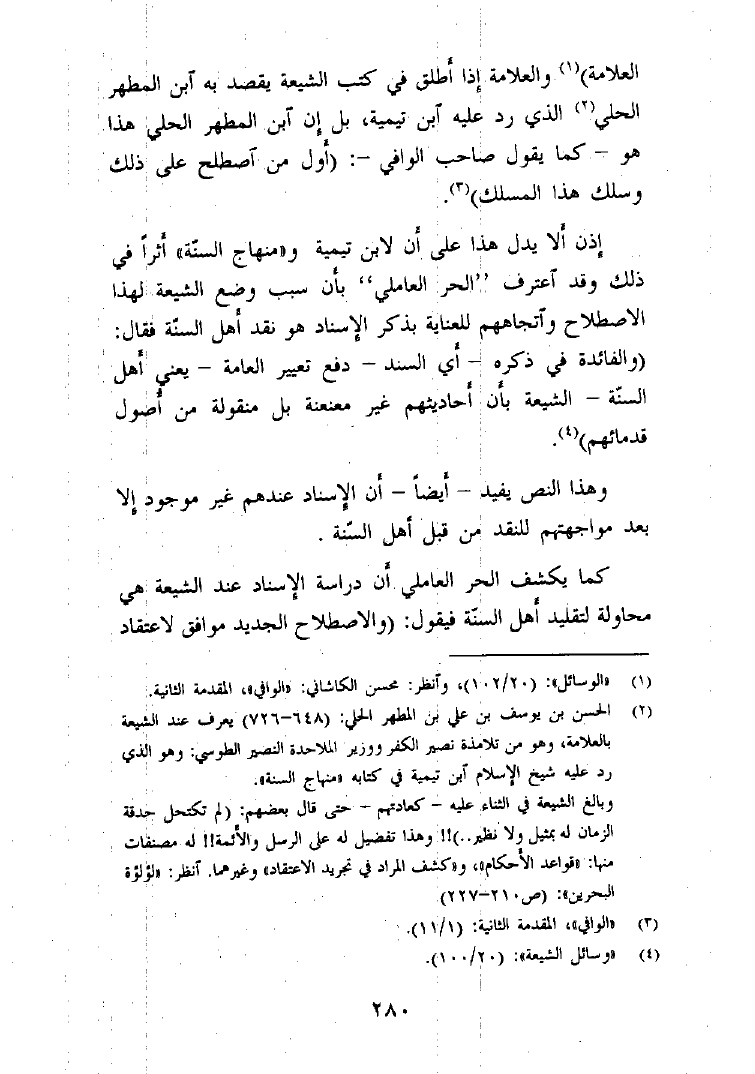 العلامة)(١) والعلامة إذا أطلق في كتب الشيعة يقصد به آبن المطهر
الحلي(٢) الذي رد عليه آبن تيمية، بل إن آبن المطهر الحلي هذا
هو – كما يقول صاحب الوافي –: (أول من آصطلح على ذلك
وسلك هذا المسلك)(٣).
إذن ألا يدل هذا على أن لابن تيمية و«منهاج السنّة» أثراً في
ذلك وقد آعترف ''الحر العاملي'' بأن سبب وضع الشيعة لهذا
الاصطلاح وآتجاههم للعناية بذكر الإسناد هو نقد أهل السنّة فقال:
(والفائدة في ذكره – أي السند – دفع تعيير العامة – يعني أهل
السنّة – الشيعة بأن أحاديثهم غير معنعنة بل منقولة من أصول
قدمائهم)(٤).
وهذا النص يفيد – أيضاً – أن الإسناد عندهم غير موجود إلا
بعد مواجهتهم للنقد من قبل أهل السنّة .
كما يكشف الحر العاملي أن دراسة الإسناد عند الشيعة هي
محاولة لتقليد أهل السنّة فيقول: (والاصطلاح الجديد موافق لاعتقاد
(١) «الوسائل»: (١٠٢/٢٠)، وآنظر: محسن الكاشاني: «الوافي»، المقدمة الثانية.
(٢) الحسن بن يوسف بن علي بن المطهر الحلي: (٦٤٨–٧٢٦) يعرف عند الشيعة
بالعلامة، وهو من تلامذة نصير الكفر ووزير الملاحدة النصير الطوسي: وهو الذي
رد عليه شيخ الإسلام آبن تيمية في كتابه «منهاج السنة».
وبالغ الشيعة في الثناء عليه – كعادتهم – حتى قال بعضهم: (لم تكتحل حدقة
الزمان له بمثيل ولا نظير..)!! وهذا تفضيل له على الرسل والأئمة!! له مصنفات
منها: «قواعد الأحكام»، و«كشف المراد في تجريد الاعتقاد» وغيرهما. آنظر: «لؤلؤة
البحرين»: (ص٢١٠–٢٢٧)
(٣) «الوافي»، المقدمة الثانية: (١١/١).
(٤) «وسائل الشيعة»: (١٠٠/٢٠).
٢٨٠